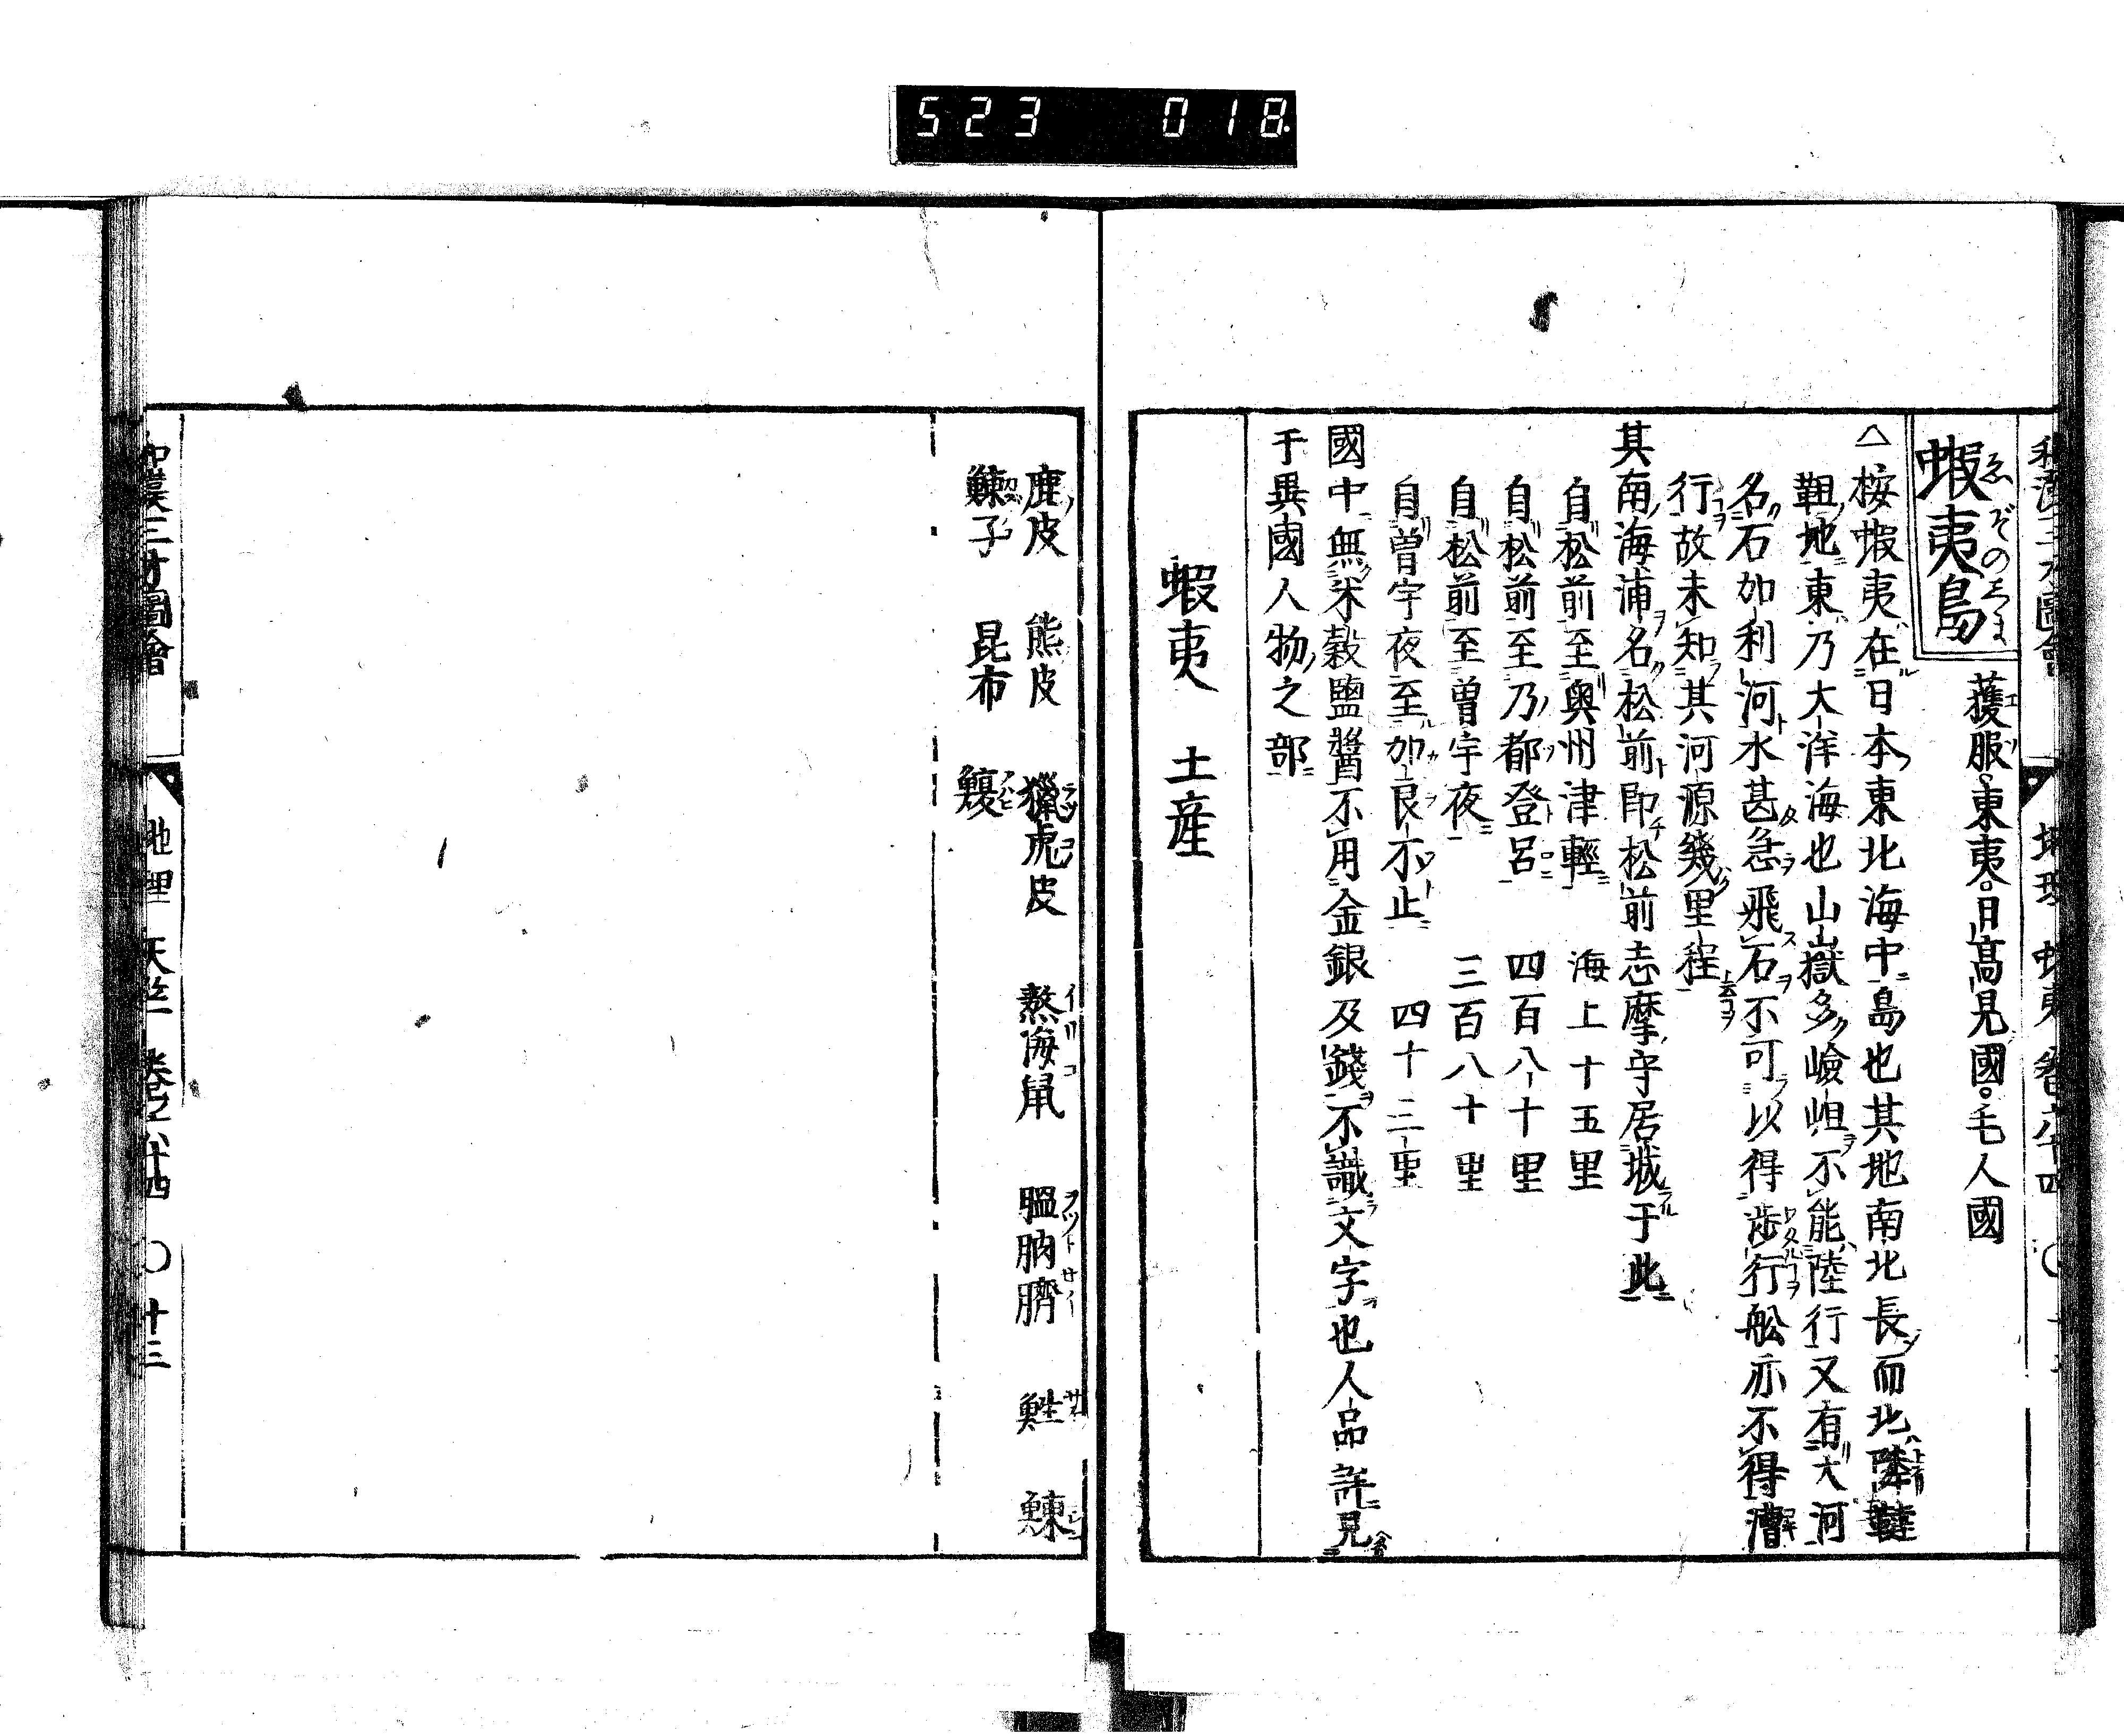 523 018
蝦夷島
ゑぞのしま
蒦服。東夷。日高見國。毛人國
△桉蝦夷在日本東北海中島也其地南北長而北隣韃
靼地東乃大洋海也山嶽多嶮岨不能陸行又有大河
名石加利河水甚急飛石不可以得渉行舩亦不得漕
行故未知其河源幾里程
其南海浦名松前即松前志摩守居城于此
自松前至奥州津輕 海上十五里
自松前至乃都登呂 四百八十里
自松前至曽宇夜 三百八十里
自曽宇夜至加良不止 四十三里
國中無米穀鹽醬不用金銀及錢不識文字也人品詳見
于異國人物之部
蝦夷 土産
鹿皮 熊皮 獵虎皮 熬海鼠 膃肭臍 鮏 鰊
鰊子 昆布 鰒
和漢三才圖會 地理 卷之六十四 〇 廿三